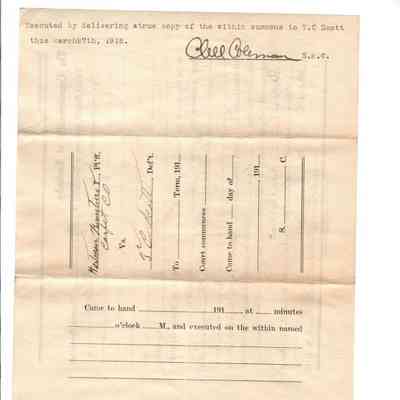 Executed by delivering atrue copy of the within summons to T.C Scott
this march27th, 1918.
Clell Coleman S.F.C.
Furniture & Pl'ff.
Carpet Co
Vs.
Def't.
To Term, 191
Court commences
Came to hand day of
, 191
S. C.
Came to hand 191 at minutes
o'clock M., and executed on the within named